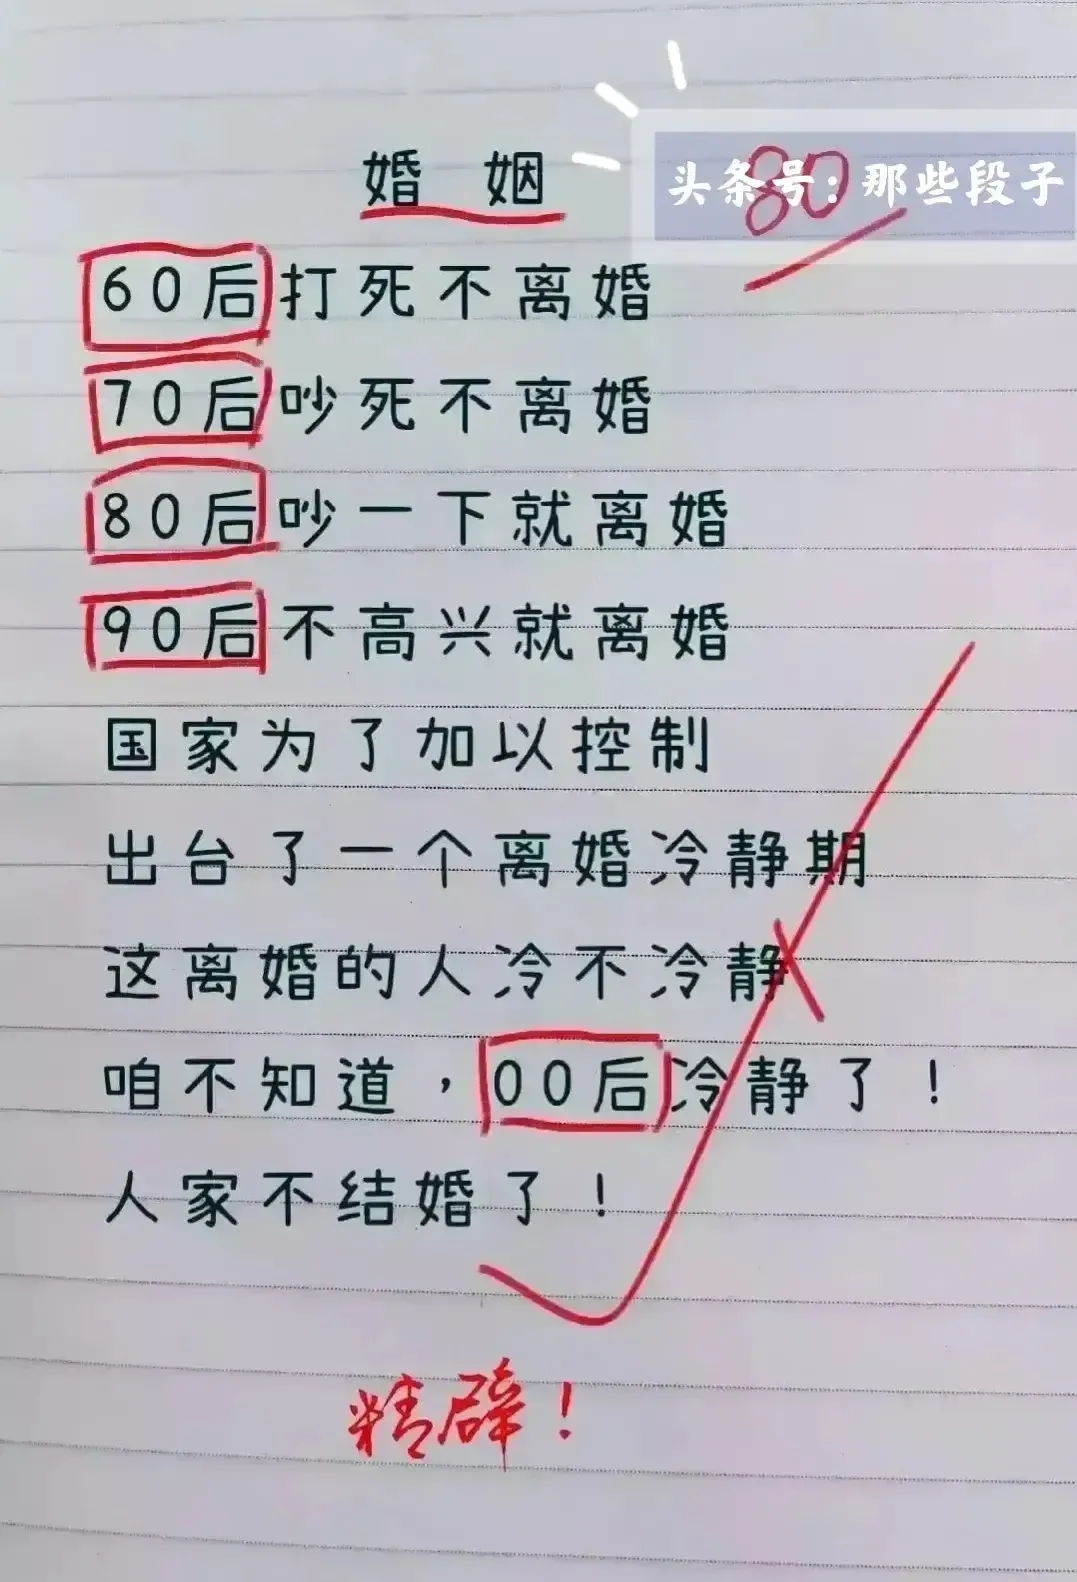 头条号：那些段子
80
婚姻
60后打死不离婚
70后吵死不离婚
80后吵一下就离婚
90后不高兴就离婚
国家为了加以控制
出台了一个离婚冷静期
这离婚的人冷不冷静
咱不知道，00后冷静了！
人家不结婚了！
精辟！